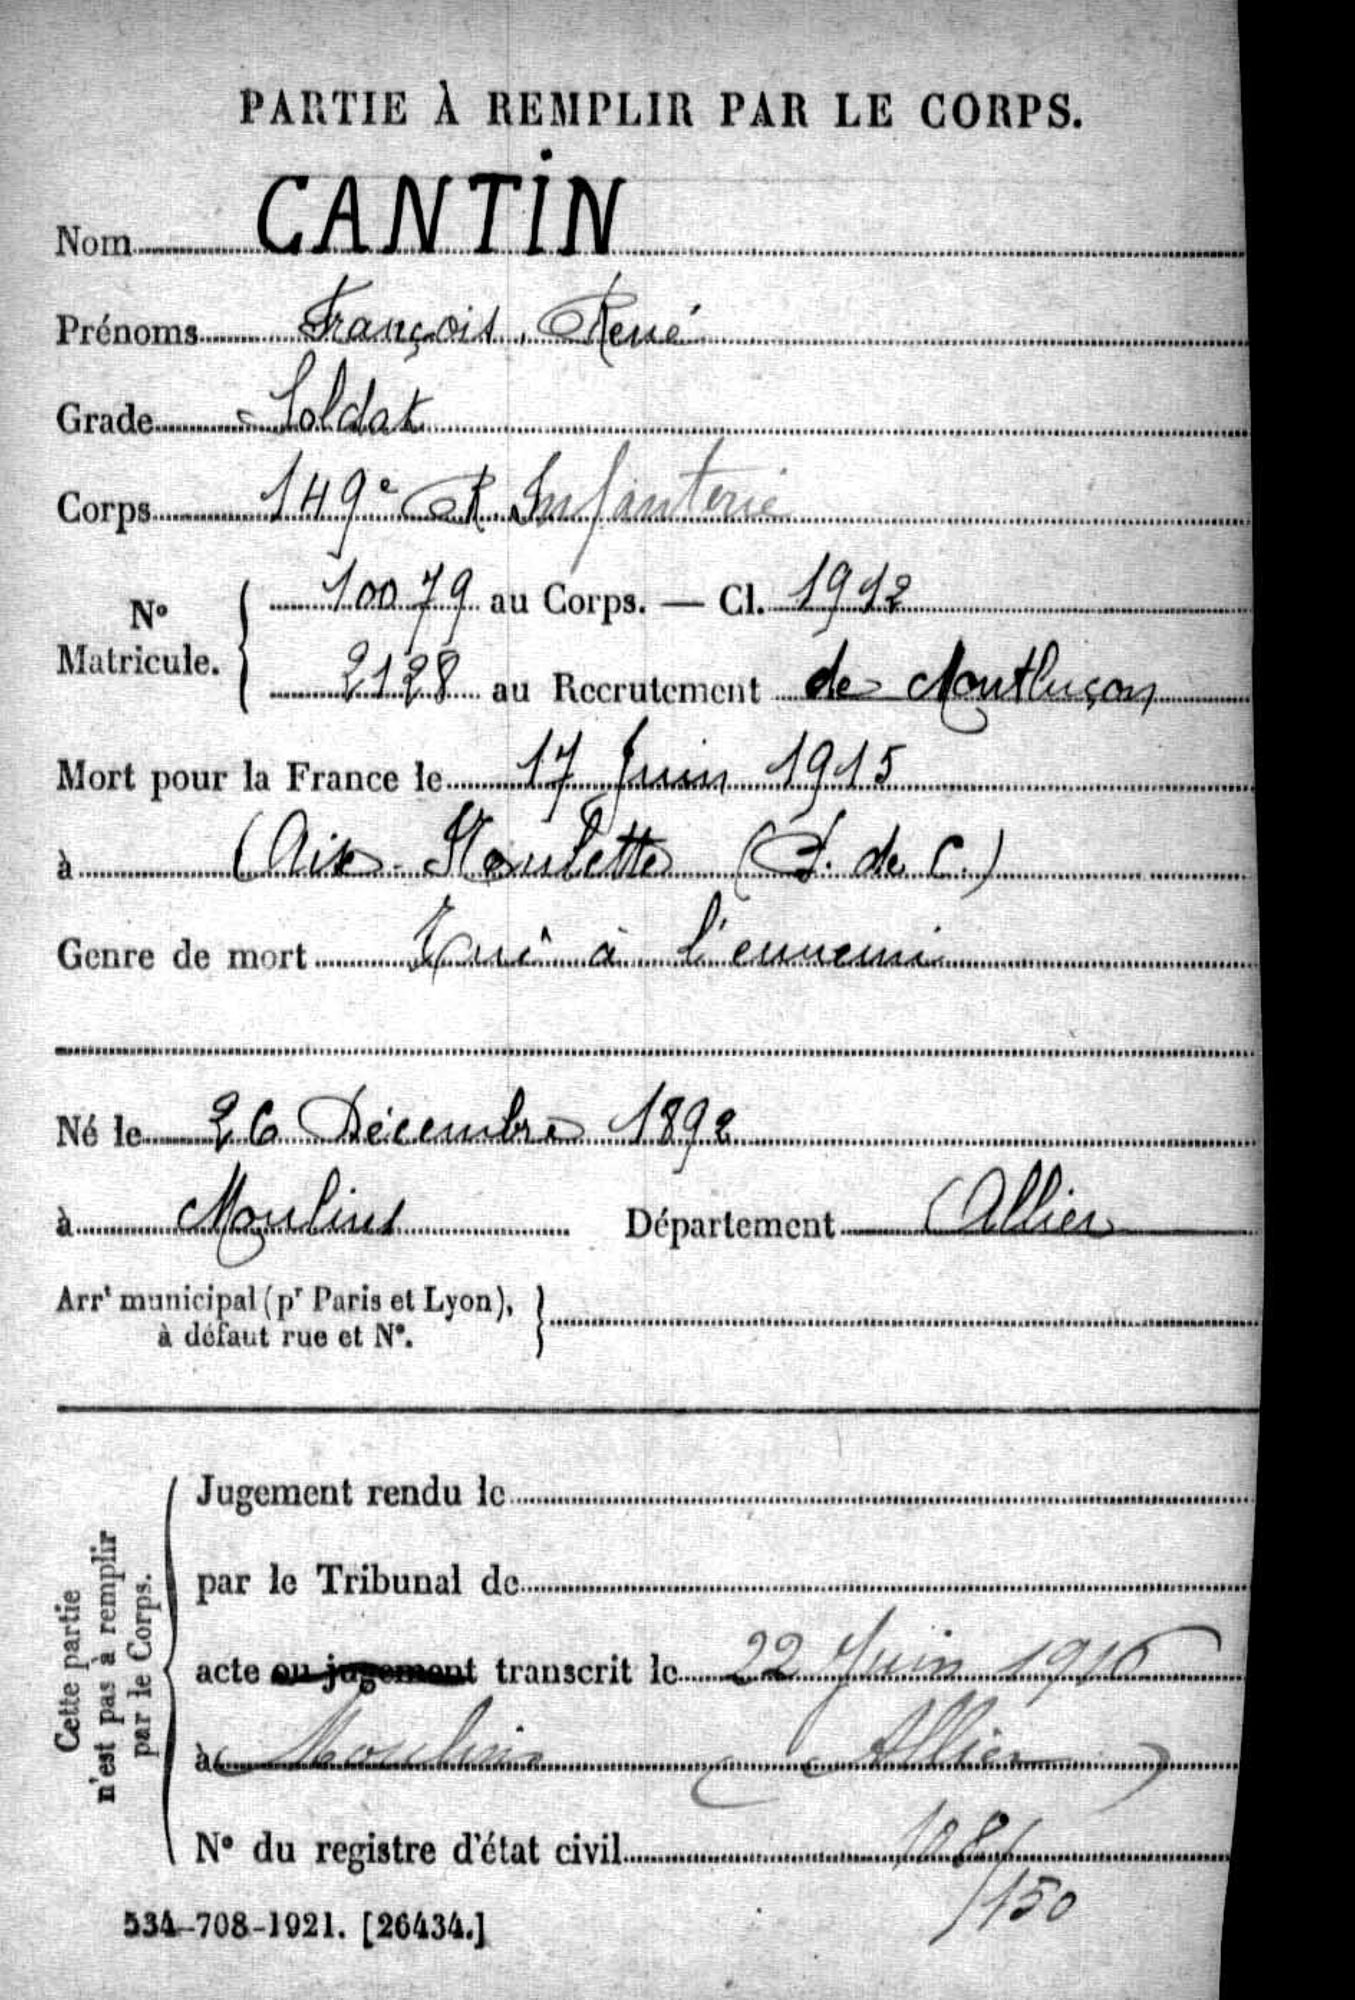 PARTIE À REMPLIR PAR LE CORPS.
Nom CANTIN
Prénoms François, René
Grade Soldat
Corps 149e R. Infanterie
N° Matricule. 10079 au Corps. — Cl. 1912
2128 au Recrutement de Montluçon
Mort pour la France le 17 Juin 1915
à Aix-Noulette (P. de C.)
Genre de mort Tué à l'ennemi
Né le 26 Décembre 1892
à Moulins Département Allier
Arrt municipal (pr Paris et Lyon),
à défaut rue et N°.
Cette partie
n'est pas à remplir
par le Corps.
Jugement rendu le
par le Tribunal de
acte ou jugement transcrit le 22 Juin 1916
à Moulins (Allier)
N° du registre d'état civil 108/
/150
534-708-1921. [26434.]